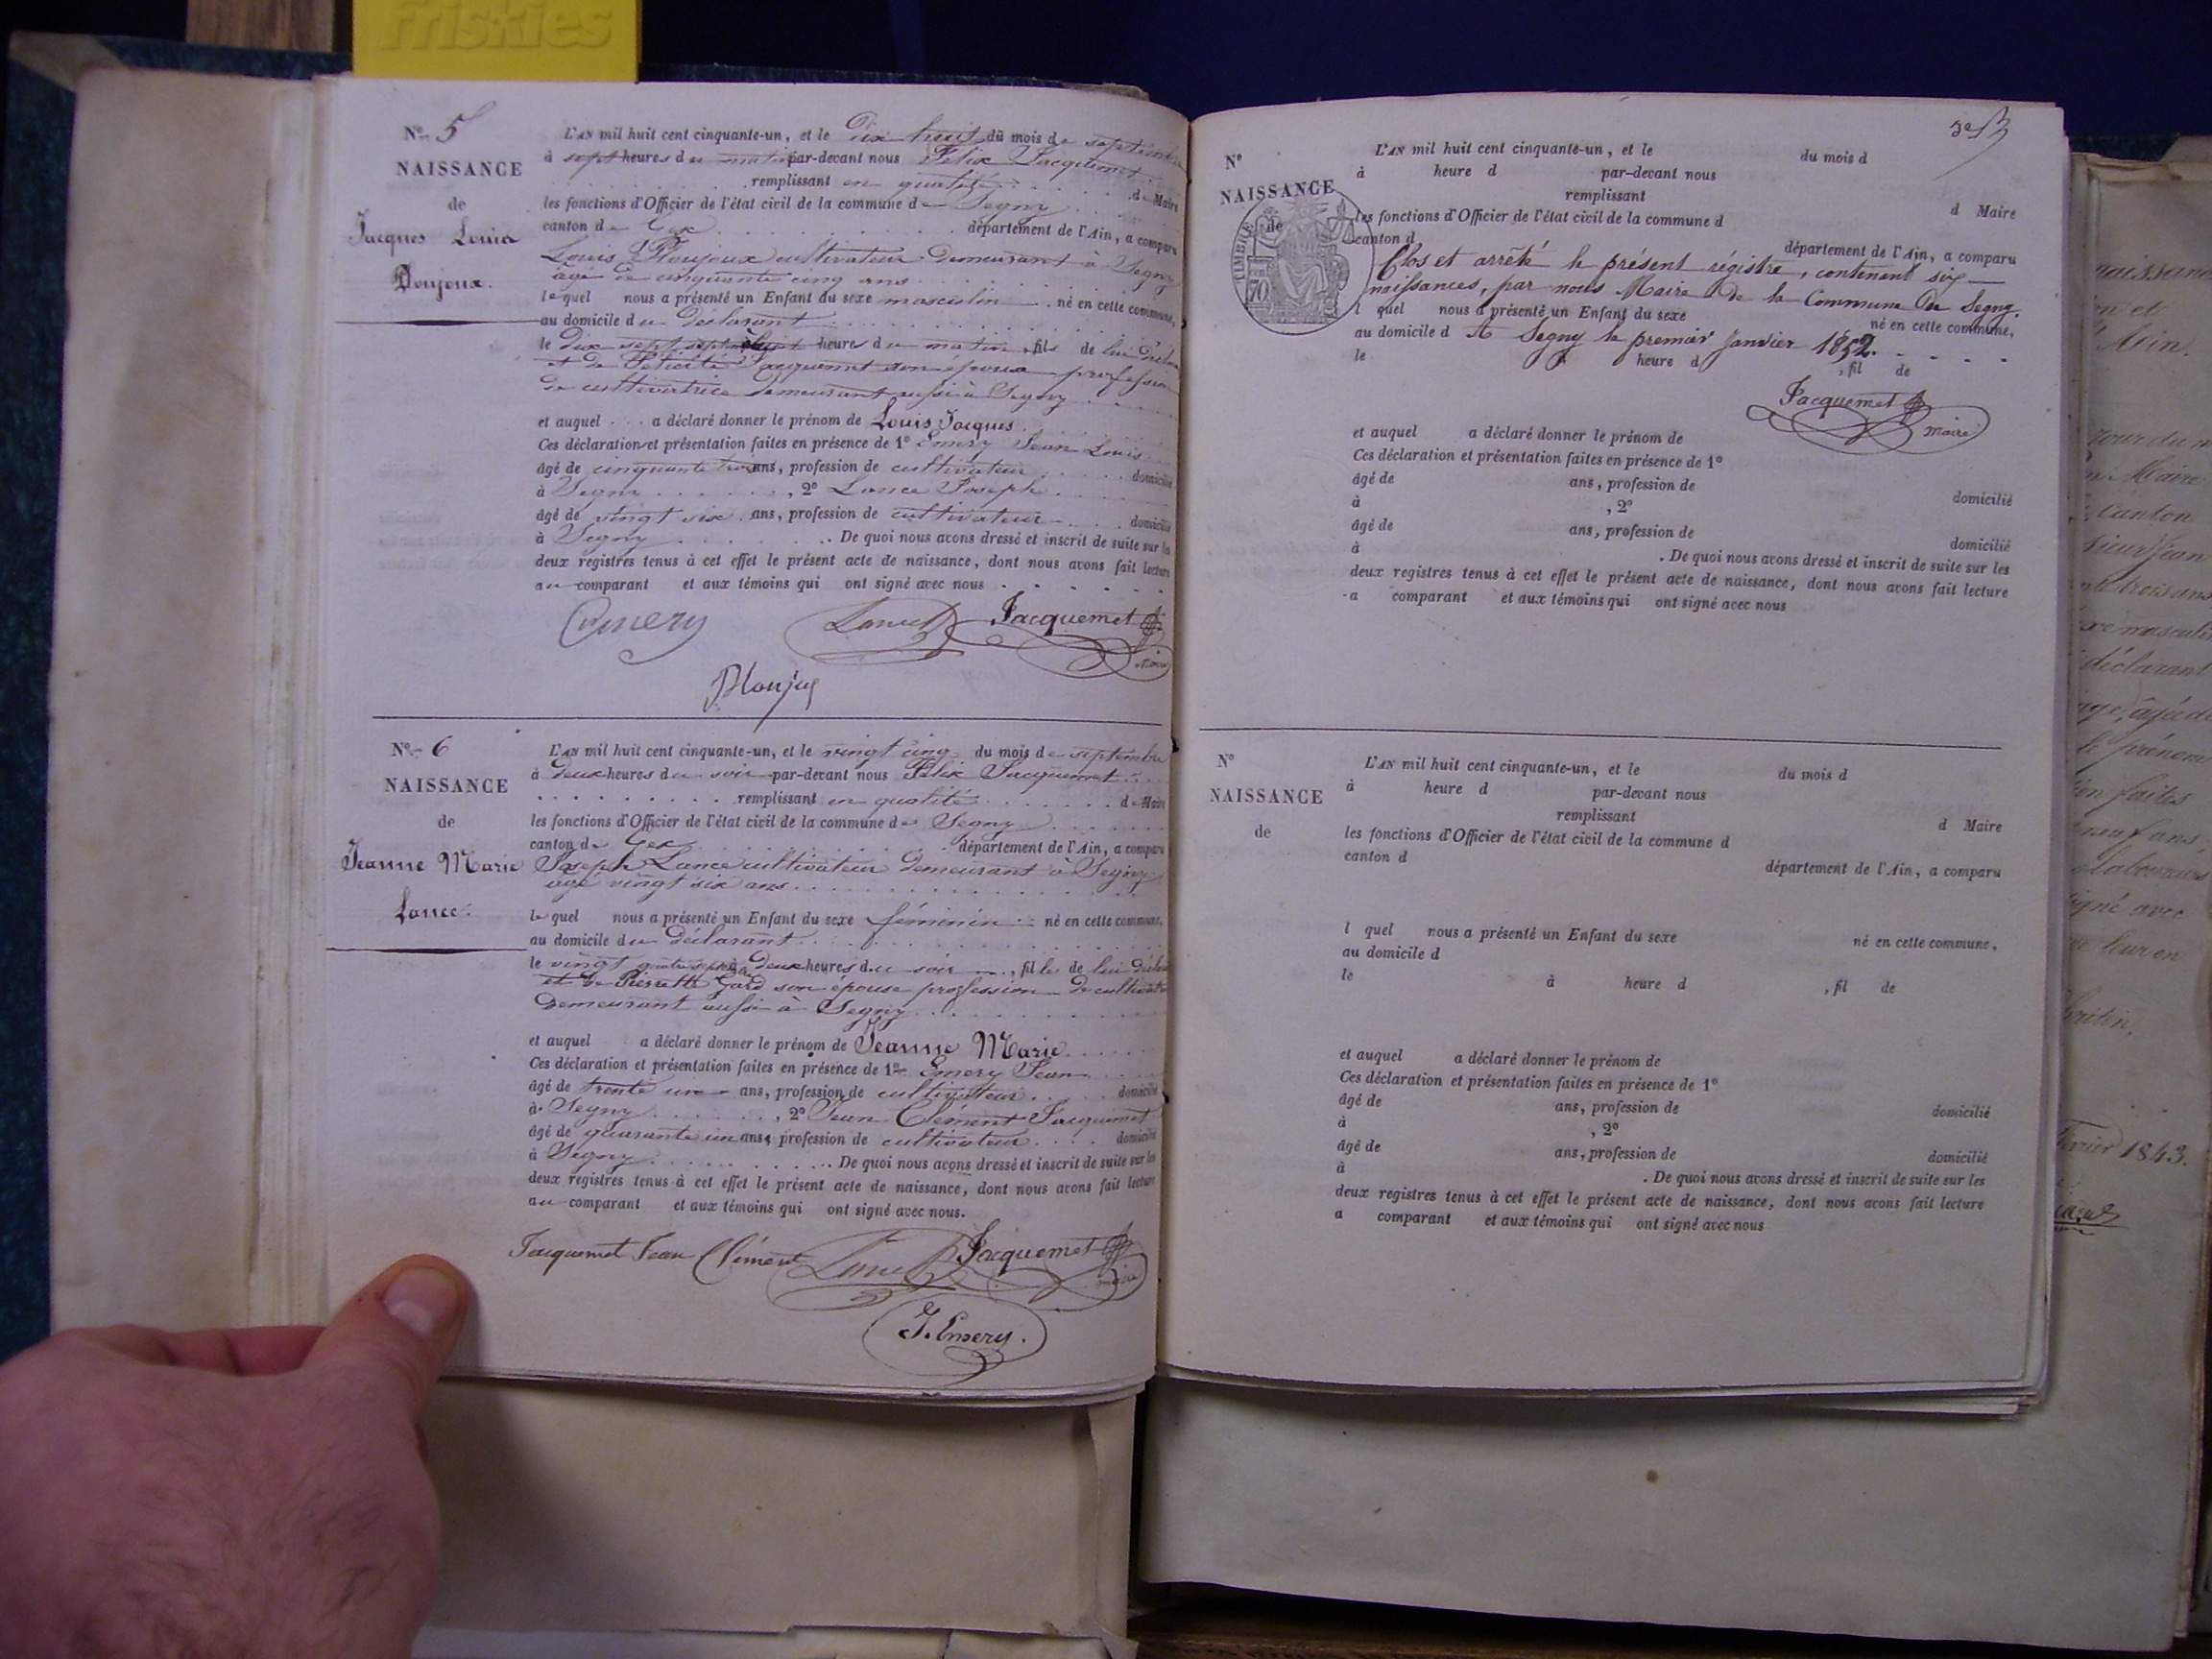 Friskies
N° 5
NAISSANCE
de
Jacques Louis
Ploujoux.
L'AN mil huit cent cinquante-un, et le Dix huit du mois de septembre
à sept heures du matin par-devant nous Félix Jacquemet
remplissant en qualité de Maire
les fonctions d'Officier de l'état civil de la commune de Segny
canton de Gex département de l'Ain, a comparu
Louis Ploujoux cultivateur demeurant à Segny
âgé de cinquante cinq ans
lequel nous a présenté un Enfant du sexe masculin né en cette commune,
au domicile du Déclarant
le Dix sept sept heures du matin, fils de lui
et de Félicité Jacquemet son épouse profession
de cultivatrice demeurant aussi à Segny
et auquel a déclaré donner le prénom de Louis Jacques.
Ces déclaration et présentation faites en présence de 1° Emery Jean Louis
âgé de cinquante trois ans, profession de cultivateur domicilié
à Segny, 2° Lance Joseph
âgé de vingt six ans, profession de cultivateur domicilié
à Segny. De quoi nous avons dressé et inscrit de suite sur les
deux registres tenus à cet effet le présent acte de naissance, dont nous avons fait lecture
au comparant et aux témoins qui ont signé avec nous
Emery Lance Jacquemet
maire
N° 6
NAISSANCE
de
Jeanne Marie
Lance.
L'AN mil huit cent cinquante-un, et le vingt cinq du mois de septembre
à deux heures du soir par-devant nous Félix Jacquemet
remplissant en qualité de Maire
les fonctions d'Officier de l'état civil de la commune de Segny
canton de Gex département de l'Ain, a comparu
Joseph Lance cultivateur demeurant à Segny
âgé vingt six ans
lequel nous a présenté un Enfant du sexe féminin né en cette commune.
au domicile du déclarant
le vingt quatre à Deux heures du soir, fille de lui
et de Pierrette Gard son épouse profession de
demeurant aussi à Segny
et auquel a déclaré donner le prénom de Jeanne Marie
Ces déclaration et présentation faites en présence de 1° Emery Jean
âgé de trente un ans, profession de cultivateur domicilié
à Segny, 2° Jean Clément Jacquemet
âgé de quarante un ans, profession de cultivateur domicilié
à Segny. De quoi nous avons dressé et inscrit de suite sur les
deux registres tenus à cet effet le présent acte de naissance, dont nous avons fait lecture
au comparant et aux témoins qui ont signé avec nous.
Jacquemet Jean Clément Lance Jacquemet
maire
J. Emery.
N°
NAISSANCE
de
TIMBRE
70
L'AN mil huit cent cinquante-un, et le du mois d
à heure d par-devant nous
remplissant
d Maire
les fonctions d'Officier de l'état civil de la commune d
canton d
département de l'Ain, a comparu
Clos et arrêté le présent régistre, contenant six
naissances, par nous Maire de la Commune de Segny.
l quel nous a présenté un Enfant du sexe né en cette commune,
au domicile d A Segny le premier Janvier 1852.
le heure d , fil de
Jacquemet
maire
et auquel a déclaré donner le prénom de
Ces déclaration et présentation faites en présence de 1°
âgé de ans, profession de
domicilié
à , 2°
âgé de ans, profession de
domicilié
à . De quoi nous avons dressé et inscrit de suite sur les
deux registres tenus à cet effet le présent acte de naissance, dont nous avons fait lecture
a comparant et aux témoins qui ont signé avec nous
N°
NAISSANCE
de
L'AN mil huit cent cinquante-un, et le du mois d
à heure d par-devant nous
remplissant
d Maire
les fonctions d'Officier de l'état civil de la commune d
canton d
département de l'Ain, a comparu
l quel nous a présenté un Enfant du sexe né en cette commune,
au domicile d
le à heure d , fil de
et auquel a déclaré donner le prénom de
Ces déclaration et présentation faites en présence de 1°
âgé de ans, profession de
domicilié
à , 2°
âgé de ans, profession de
domicilié
à . De quoi nous avons dressé et inscrit de suite sur les
deux registres tenus à cet effet le présent acte de naissance, dont nous avons fait lecture
a comparant et aux témoins qui ont signé avec nous
Ain.
Maire
canton
trois ans
déclarant
prénom
faites
neuf ans
avec
1843.